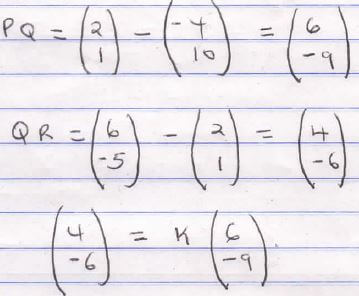 PQ = (2 1) - (-4 10) = (6 -9)
QR = (6 -5) - (2 1) = (4 -6)
(4 -6) = K (6 -9)